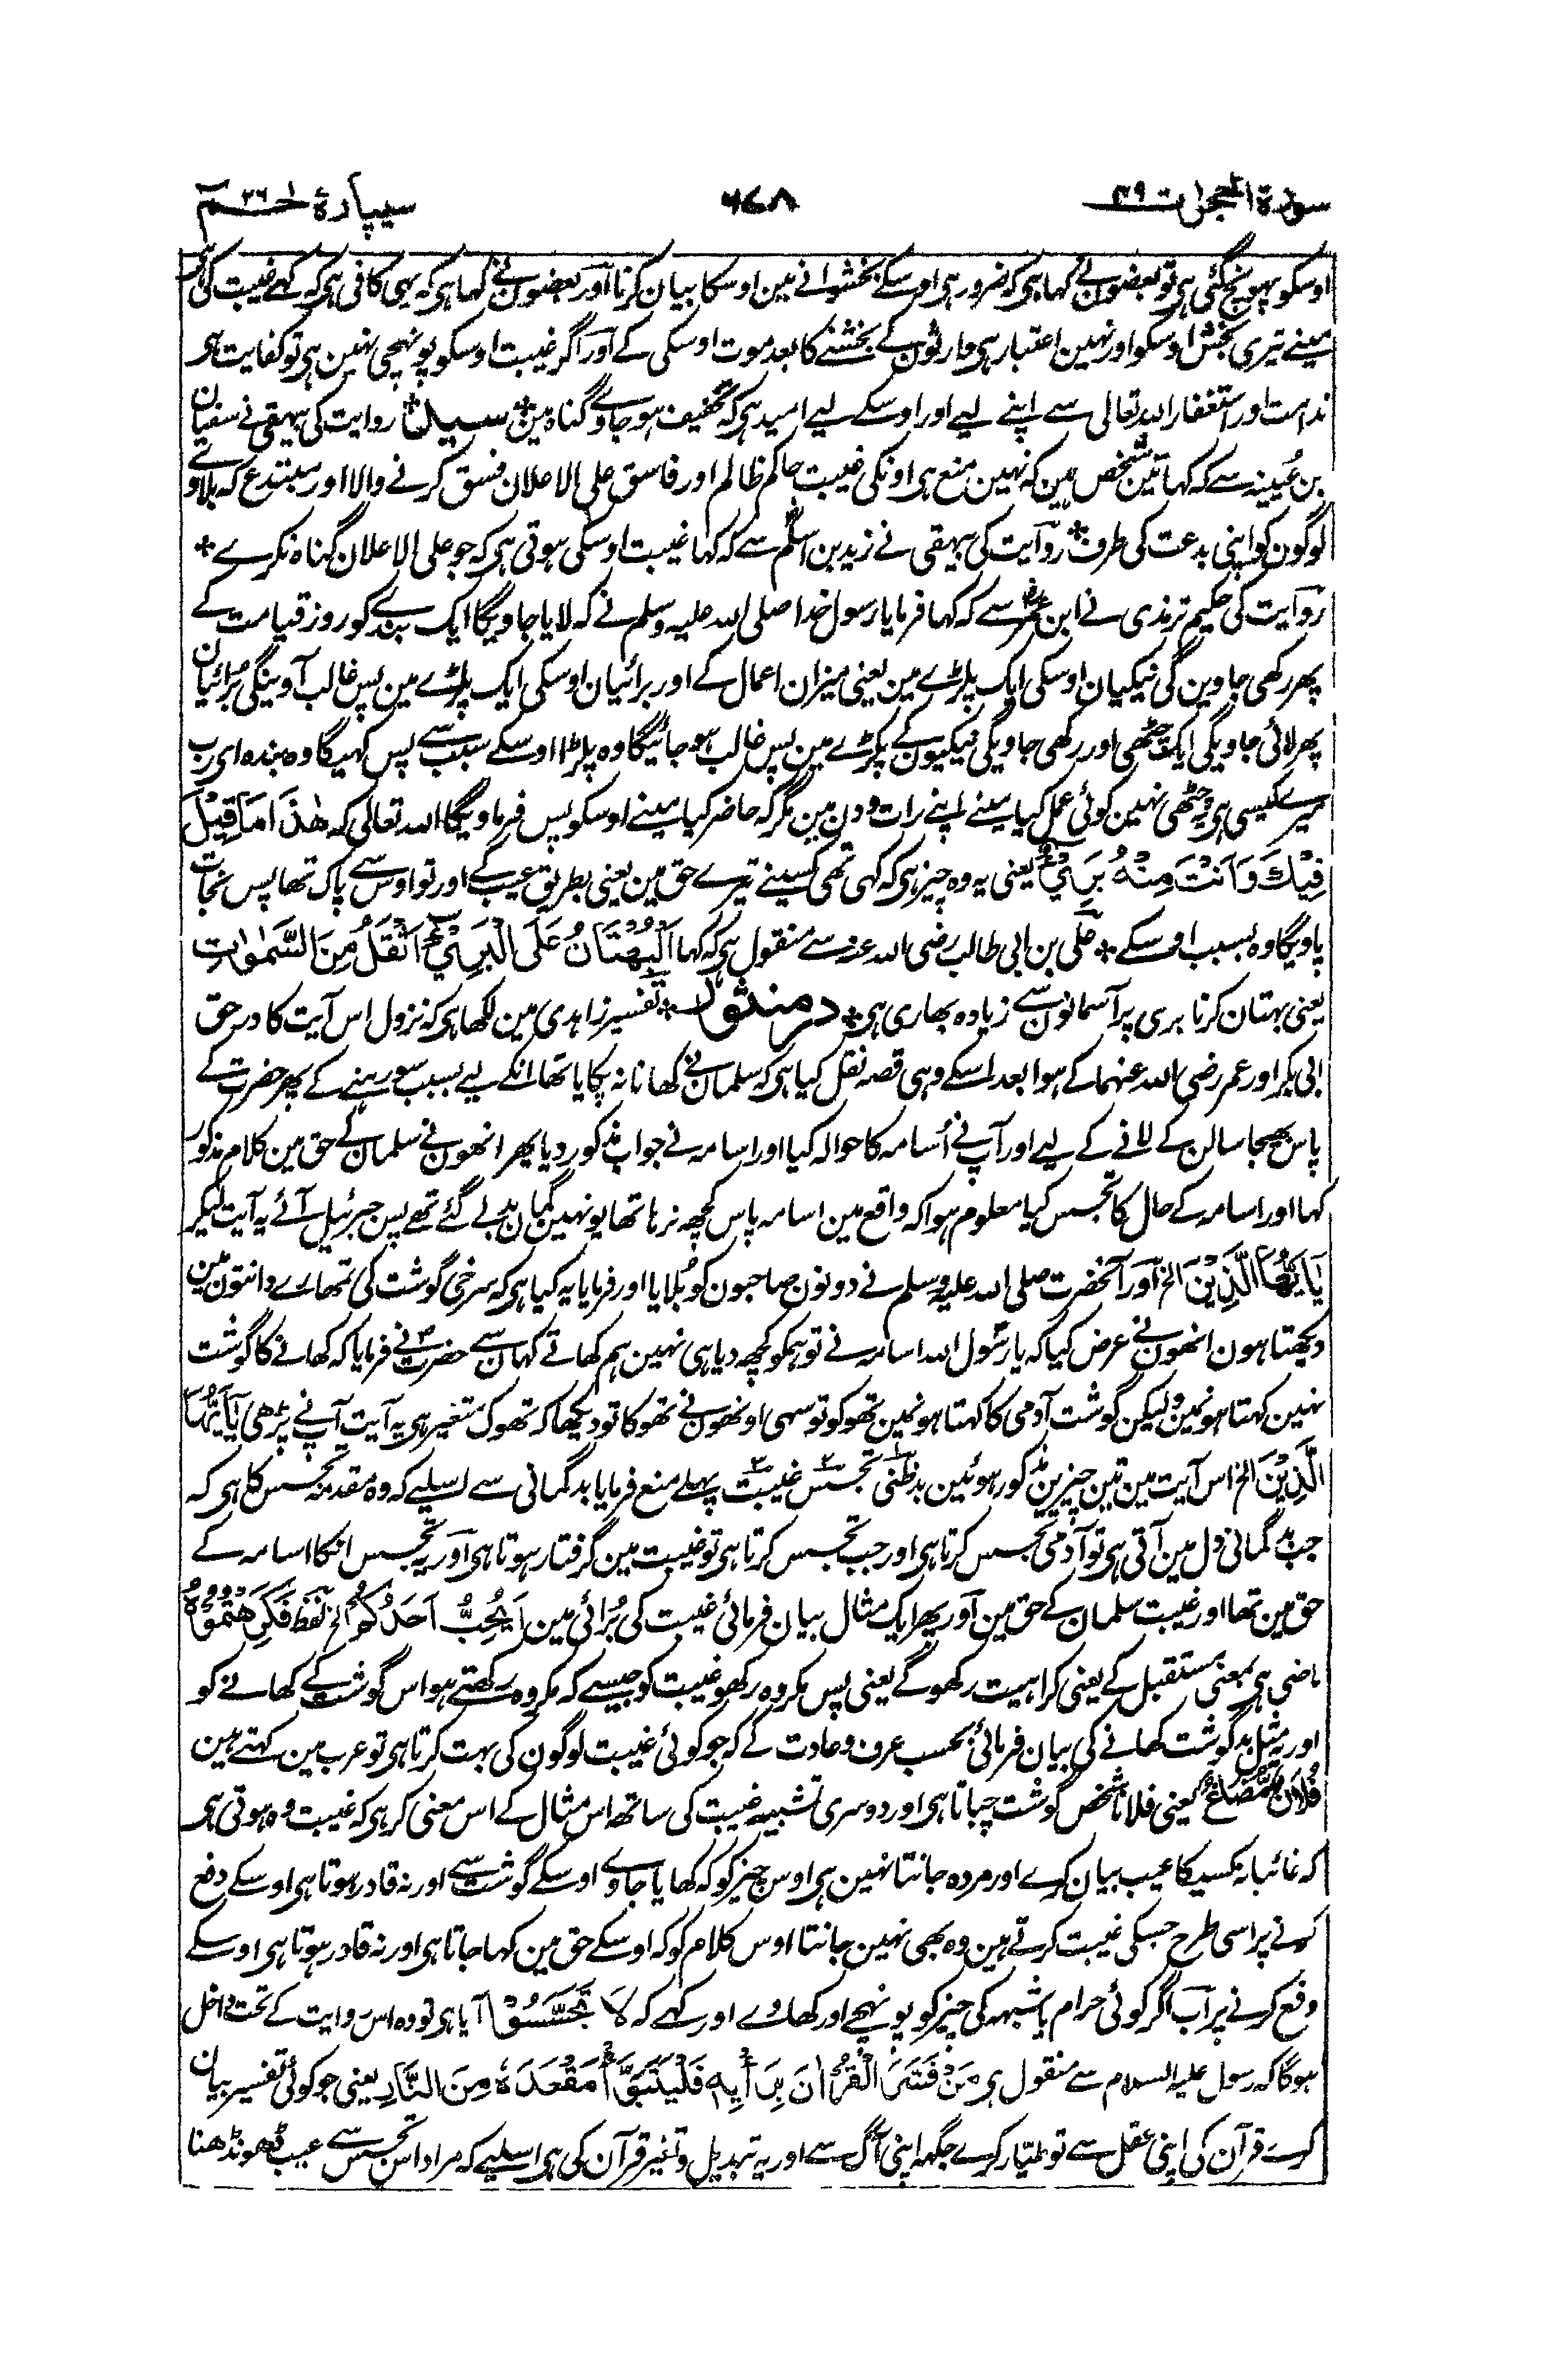 سورة الحجرات ۴۹ ۶۷۸ سیپارۂ حٰم ۲۶
اوسکو پہونچ گئی ہی تو بعضون نے کہا ہی کہ ضرور ہی اوسکے بخشوانے مین اوسکا بیان کرنا اور بعضون نے کہا ہی کہ یہی کافی ہی کہ کہے غیبت کی
مینے تیری بخش اوسکو اور نہین اعتبار ہی وارثون کے بخشنے کا بعد موت اوسکی کے اور اگر غیبت اوسکو پونہچی نہین ہی تو کفایت ہی
ندامت اور استغفار الله تعالی سے اپنے لیے اور اوسکے لیے امید ہی کہ تخفیف ہو جاوے گناہ مین * روایت کی بیہقی نے سفیان
بن عُیینہ سے کہ کہا تین شخص ہین کہ نہین منع ہی اونکی غیبت حاکم ظالم اور فاسق علی الاعلان فسق کرنے والا اور مبتدع کہ بلاوے
لوگون کو اپنی بدعت کی طرف * روایت کی بیہقی نے زید بن اسلم سے کہ کہا غیبت اوسکی ہوتی ہی کہ جو علی الاعلان گناہ نکرے *
روایت کی حکیم ترمذی نے ابن عمر سے کہ کہا فرمایا رسول خدا صلی الله علیہ وسلم نے کہ لایا جاویگا ایک بندے کو روز قیامت کے
پھر رکھی جاوین گی نیکیان اوسکی ایک پلڑے مین یعنی میزان اعمال کے اور برائیان اوسکی ایک پلڑے مین پس غالب آوینگی برائیان
پھر لائی جاویگی ایک چٹھی اور رکھی جاویگی نیکیون کے پلڑے مین پس غالب ہو جائیگا وہ پلڑا اوسکے سبب سے پس کہیگا وہ بندہ ای رب
میرے کیسی ہی یہ چٹھی نہین کوئی عمل کیا مینے اپنے رات و دن مین مگر کہ حاضر کیا مینے اوسکو پس فرماویگا الله تعالی کہ هٰذَا مَا قِيْلَ
فِيْكَ وَاَنْتَ مِنْهُ بَرِيْءٌ یعنی یہ وہ چیز ہی کہ کہی تھی کسینے تیرے حق مین یعنی بطریق عیب کے اور تو اوس سے پاک تھا پس نجات
پاویگا وہ بسبب اوسکے * علی بن ابی طالب رضی الله عنہ سے منقول ہی کہ کہا اَلْبُهْتَانُ عَلَى الْبَرِيْءِ اَثْقَلُ مِنَ السَّمٰوٰتِ
یعنی بہتان کرنا بری پر آسمانون سے زیادہ بھاری ہی * در منثور * تفسیر زاہدی مین لکھا ہی کہ نزول اس آیت کا در حق
ابی بکر اور عمر رضی الله عنہما کے ہوا بعد اسکے وہی قصہ نقل کیا ہی کہ سلمان نے کھانا نہ پکایا تھا انکے لیے بسبب سو رہنے کے پھر حضرت کے
پاس بھیجا سالن کے لانے کے لیے اور آپ نے اُسامہ کا حوالہ کیا اور اسامہ نے جواب مذکور دیا پھر انھون نے سلمان کے حق مین کلام مذکور
کہا اور اسامہ کے حال کا تجسس کیا معلوم ہوا کہ واقع مین اسامہ پاس کچھ نرہا تھا یونہین گمان بد لے گئے تھے پس جبرئیل آئے یہ آیت لیکر
يٰاَيُّهَا الَّذِيْنَ الخ اور آنحضرت صلی الله علیہ وسلم نے دونون صاحبون کو بُلایا اور فرمایا یہ کیا ہی کہ سرخی گوشت کی تمھارے دانتون مین
دیکھتا ہون انھون نے عرض کیا کہ یا رسول الله اسامہ نے تو ہمکو کچھ دیا ہی نہین ہم کھاتے کہان سے حضرت نے فرمایا کہ کھانے کا گوشت
نہین کہتا ہونمین ولیکن گوشت آدمی کا کہتا ہونمین تھوکو تو سہی اونھون نے تھوکا تو دیکھا کہ تھوک متغیر ہی یہ آیت آپنے پڑھی يٰاَيُّهَا
الَّذِيْنَ الخ اس آیت مین تین چیزین مذکور ہوئین بدظنی ۱ تجسس ۲ غیبت ۳ پہلے منع فرمایا بدگمانی سے اسلیے کہ وہ مقدمہ تجسس کا ہی کہ
جب بدگمانی دل مین آتی ہی تو آدمی تجسس کرتا ہی اور جب تجسس کرتا ہی تو غیبت مین گرفتار ہوتا ہی اور یہ تجسس انکا اسامہ کے
حق مین تھا اور غیبت سلمان کے حق مین اور پھر ایک مثال بیان فرمائی غیبت کی بُرائی مین اَيُحِبُّ اَحَدُكُمْ الخ لفظ فَكَرِهْتُمُوْهُ
ماضی ہی بمعنی مستقبل کے یعنی کراہیت رکھو گے یعنی پس مکروہ رکھو غیبت کو جیسے کہ مکروہ رکھتے ہو اس گوشت کے کھانے کو
اور یہ مثل بد گوشت کھانے کی بیان فرمائی بحسب عرف و عادت کے کہ جو کوئی غیبت لوگون کی بہت کرتا ہی تو عرب مین کہتے ہین
یعنی فلانا شخص گوشت چباتا ہی اور دوسری تشبیہ غیبت کی ساتھ اس مثال کے اس معنی کر ہی کہ غیبت وہ ہوتی ہی
کہ غائبانہ کسیکا عیب بیان کرے اور مردہ جانتا نہین ہی اوس چیز کو کہ کھایا جاوے اوسکے گوشت سے اور نہ قادر ہوتا ہی اوسکے دفع
کرنے پر اسی طرح جسکی غیبت کرتے ہین وہ بھی نہین جانتا اوس کلام کو کہ اوسکے حق مین کہا جاتا ہی اور نہ قادر ہوتا ہی اوسکے
دفع کرنے پر اب اگر کوئی حرام یا شبہہ کی چیز کو پونہچے اور کھاوے اور کہے کہ لَا تَجَسَّسُوْا آیا ہی تو وہ اس روایت کے تحت داخل
ہوگا کہ رسول علیہ السلام سے منقول ہی مَنْ فَسَّرَ الْقُرْاٰنَ بِرَأْيِهٖ فَلْيَتَبَوَّأْ مَقْعَدَهٗ مِنَ النَّارِ یعنی جو کوئی تفسیر بیان
کرے قرآن کی اپنی عقل سے تو طیار کرے جگہہ اپنی آگ سے اور یہ تبدیل و تغیر قرآن کی ہی اسلیے کہ مراد اس تجسس سے عیب ڈھونڈھنا